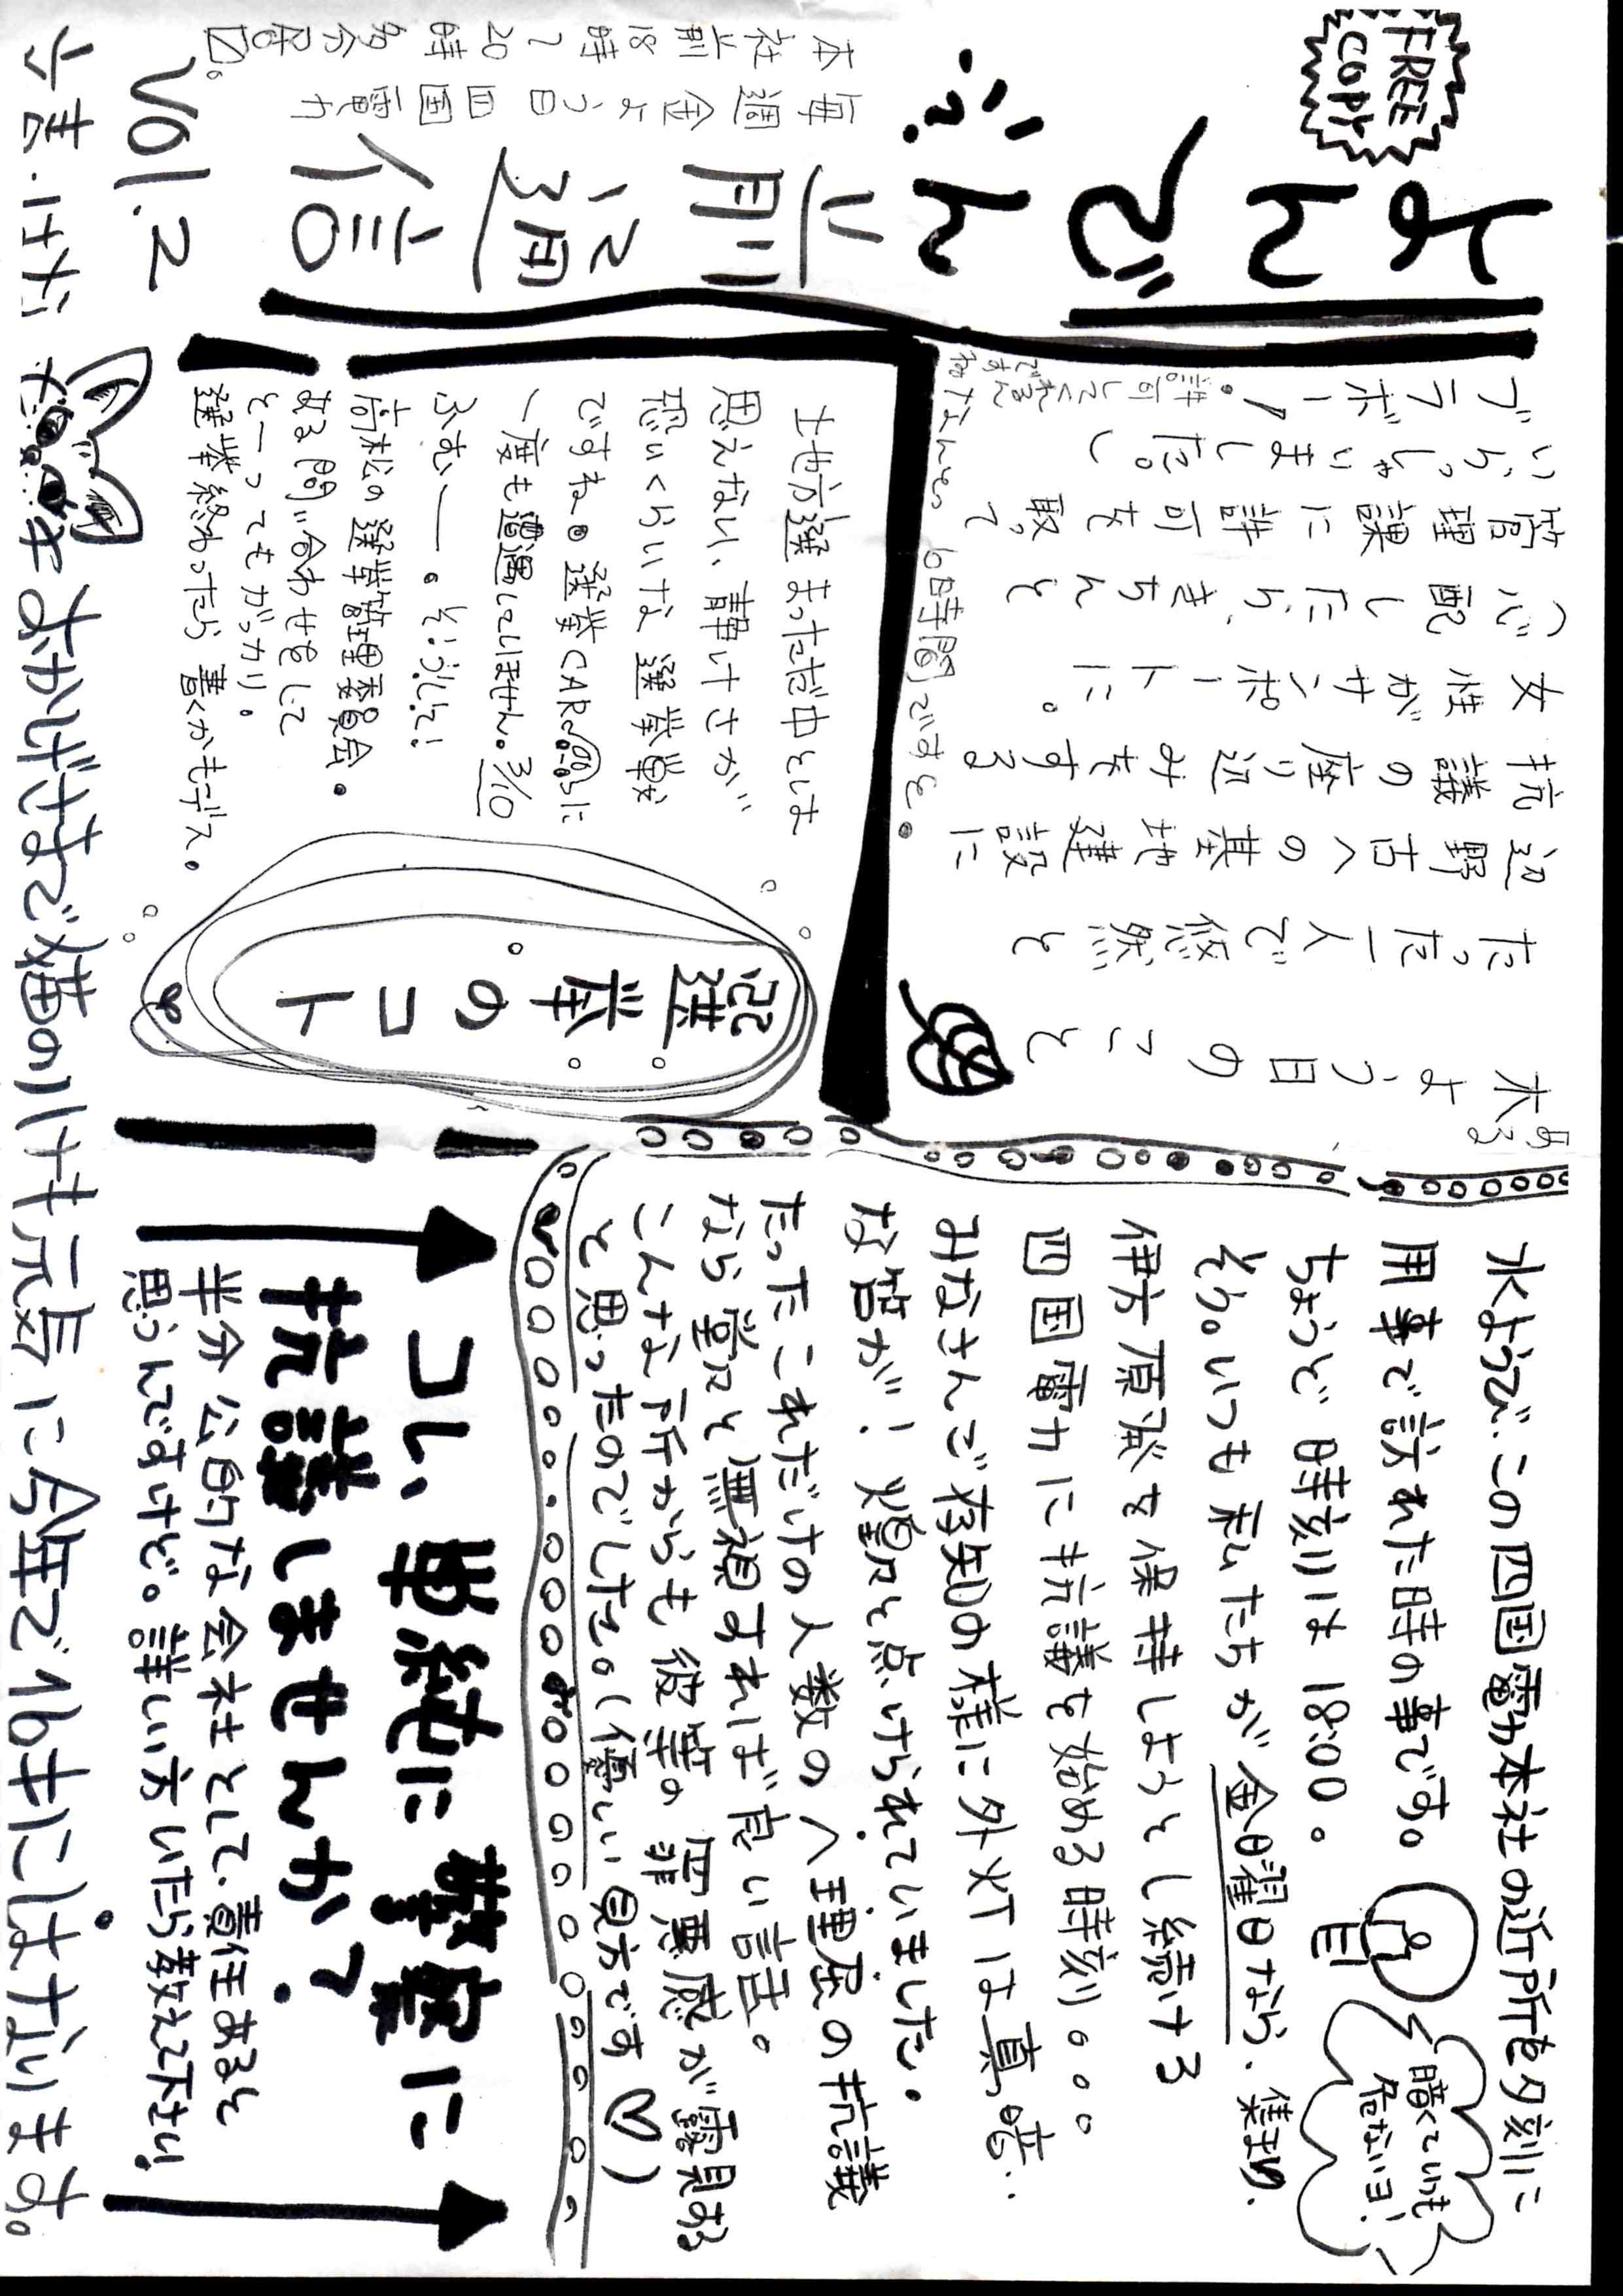 FREE
COPY
よんでん
前週信
Vol.2
毎週金よう日四国電力
本社前18時~20時多分居□。
木よう日のこと
ある
たった一人で悠然と
辺野古への基地建設に
抗議の座り込みをする
女性がサポートに。
心配したら、きちんと
管理課に許可を取って
いらっしゃいました。
ブラボー!
許可してくれるん
ですね
なんと、6時間ですと。
選挙のコト
士地方選まっただ中とは
思えない、静けさが
恐いくらいな選挙戦
ですね。選挙CARに
一度も遭遇していません。3/10
ふむー。そうして!
高松の選挙管理委員会。
ある問い合わせをして
とーってもがっかり。
選挙終わったら書くかもデス。
水ようび、この四国電力本社の近所を夕刻に
用事で訪れた時の事です。
ちょうど時刻は18:00。
そう。いつも私たちが金曜日なら、集まり、
伊方原発を保持しようとし続ける
四国電力に抗議を始める時刻。。。
みなさんご存知の様に外灯は真っ暗‥
な筈が!煌々と点けられていました。
たったこれだけの人数のヘ理屈の抗議
なら堂々と無視すれば良い話。
こんな所からも彼等の罪悪感が露見する
と思ったのでした。(優しい見方です♡)
暗くていつも
危ないヨ!
コレ、単純に警察に
抗議しませんか?
半分公的な会社として、責任あると
思うんですけど。詳しい方いたら教えて下さい!
おかげさまで猫のはも元気に今年で16才になります。